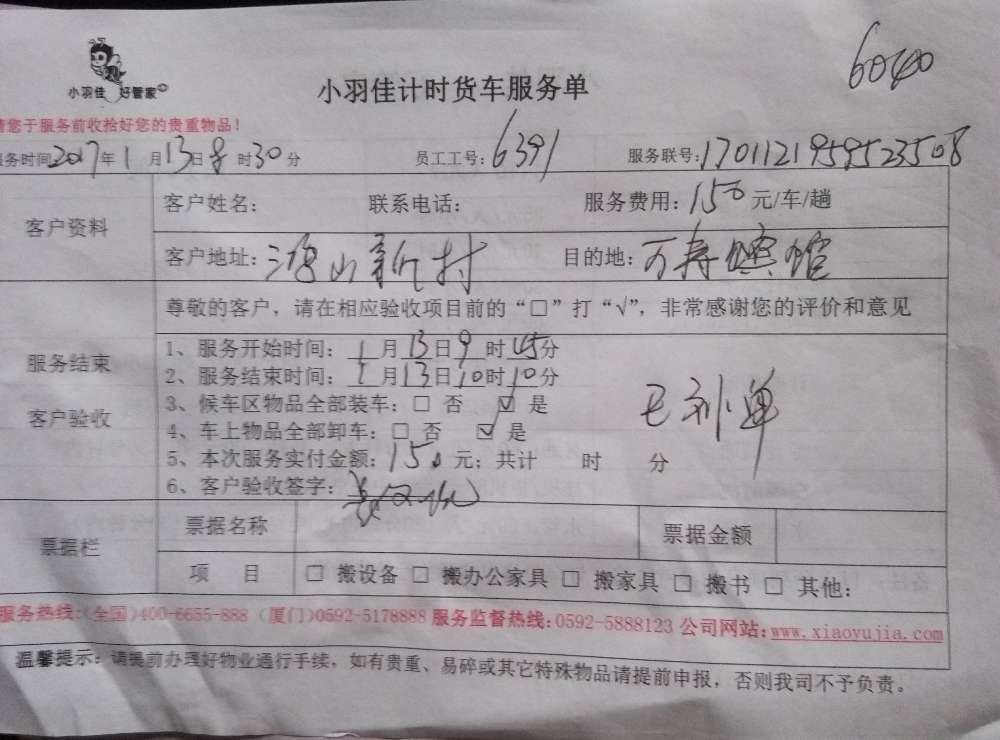 60400
小羽佳 好管家
小羽佳计时货车服务单
请您于服务前收拾好您的贵重物品！
服务时间2017年1月13日8时30分 员工工号：6391 服务联号：1701121959523508
客户资料
客户姓名： 联系电话： 服务费用：150元/车/趟
客户地址：湖山新村 目的地：万寿宾馆
服务结束
客户验收
尊敬的客户，请在相应验收项目前的“□”打“√”，非常感谢您的评价和意见
1、服务开始时间：1月13日9时45分
2、服务结束时间：1月13日10时10分
3、候车区物品全部装车：□ 否 ☑ 是
4、车上物品全部卸车：□ 否 ☑ 是
5、本次服务实付金额：150元；共计 时 分
6、客户验收签字：
票据栏
票据名称 票据金额
项 目 □ 搬设备 □ 搬办公家具 □ 搬家具 □ 搬书 □ 其他：
服务热线：(全国)400-6655-888 (厦门)0592-5178888 服务监督热线：0592-5888123 公司网站：www.xiaoyujia.com
温馨提示：请提前办理好物业通行手续，如有贵重、易碎或其它特殊物品请提前申报，否则我司不予负责。